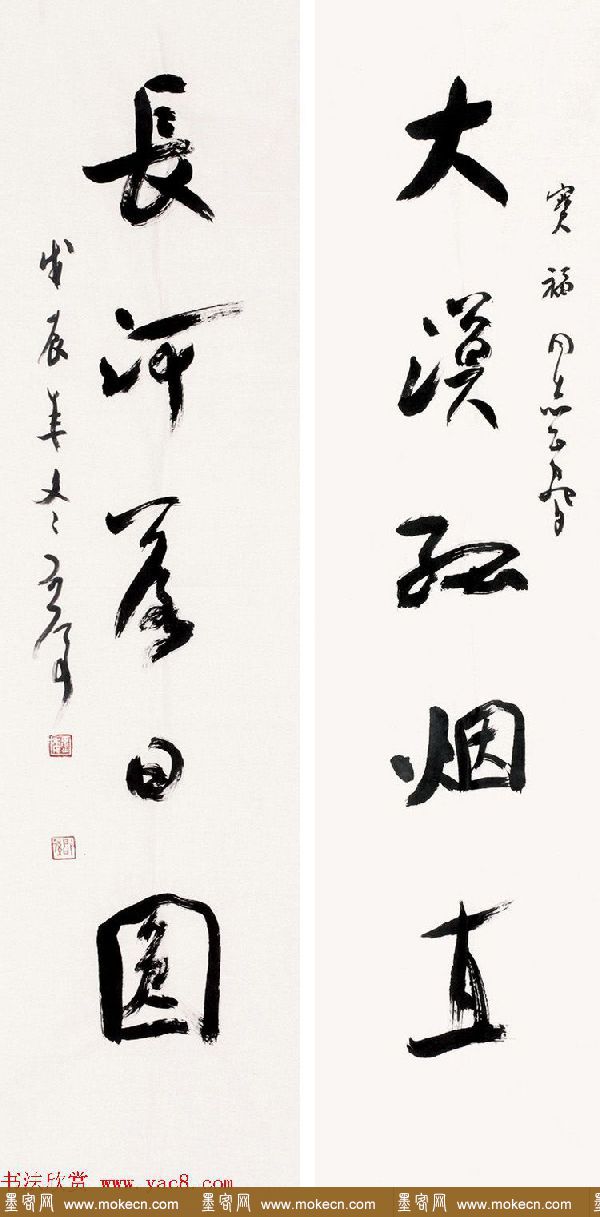 大漠孤烟直
寶福同志正書
長河落日圓
戊辰年冬
书法欣赏 www.yac8.com
墨客网 www.mokecn.com 墨客网 www.mokecn.com 墨客网 www.mokecn.com